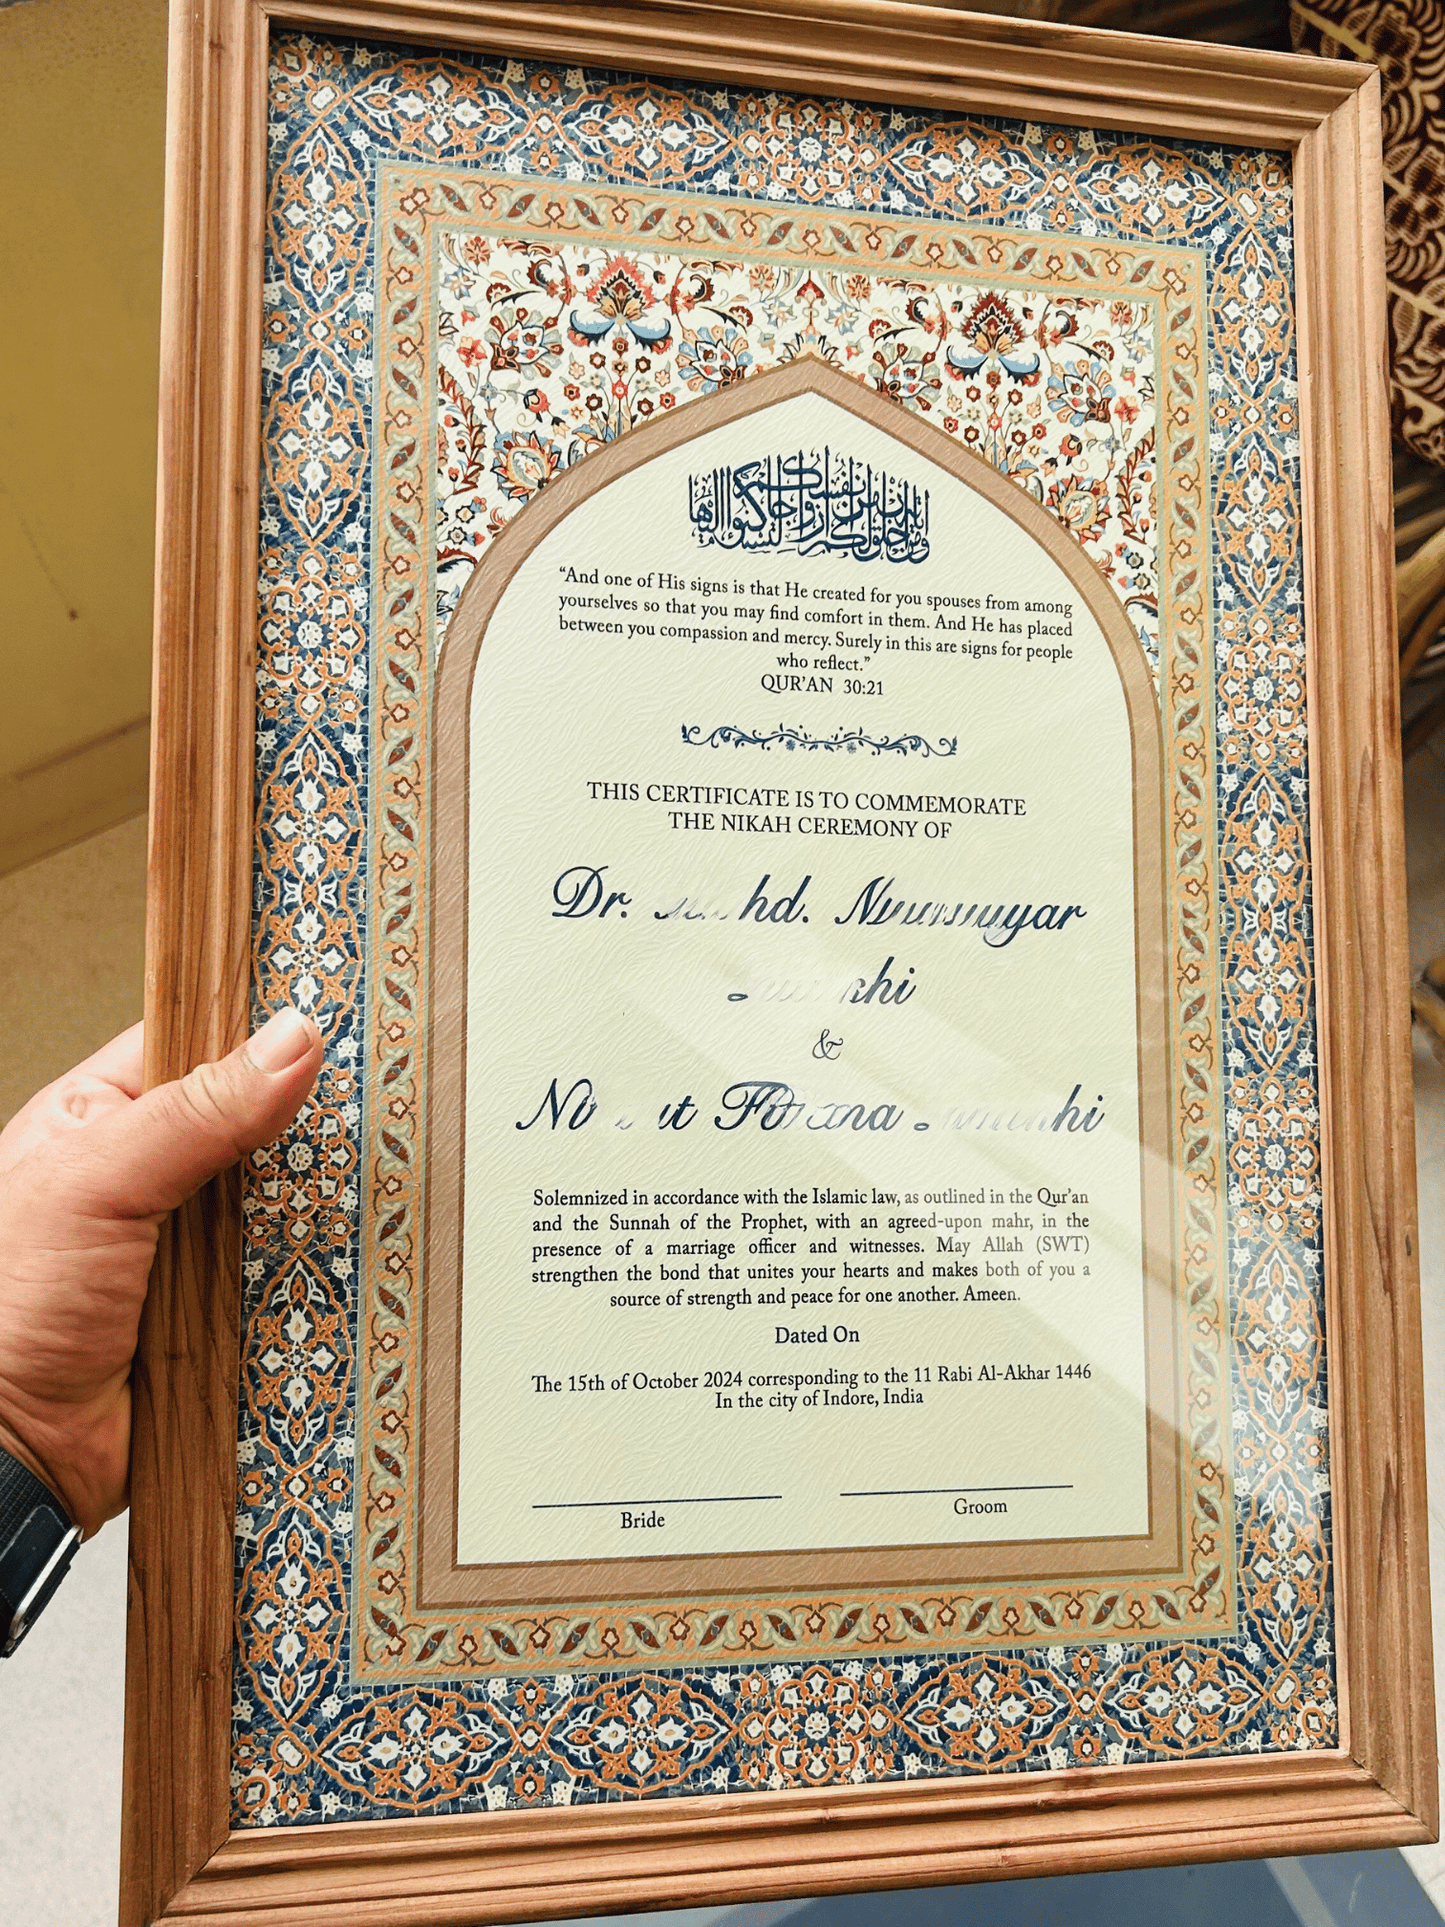 ومن آياته أن خلق لكم من أنفسكم أزواجا لتسكنوا إليها
“And one of His signs is that He created for you spouses from among
yourselves so that you may find comfort in them. And He has placed
between you compassion and mercy. Surely in this are signs for people
who reflect.”
QUR’AN 30:21
THIS CERTIFICATE IS TO COMMEMORATE
THE NIKAH CEREMONY OF
Dr.
&
Solemnized in accordance with the Islamic law, as outlined in the Qur’an
and the Sunnah of the Prophet, with an agreed-upon mahr, in the
presence of a marriage officer and witnesses. May Allah (SWT)
strengthen the bond that unites your hearts and makes both of you a
source of strength and peace for one another. Ameen.
Dated On
The 15th of October 2024 corresponding to the 11 Rabi Al-Akhar 1446
In the city of Indore, India
Bride
Groom